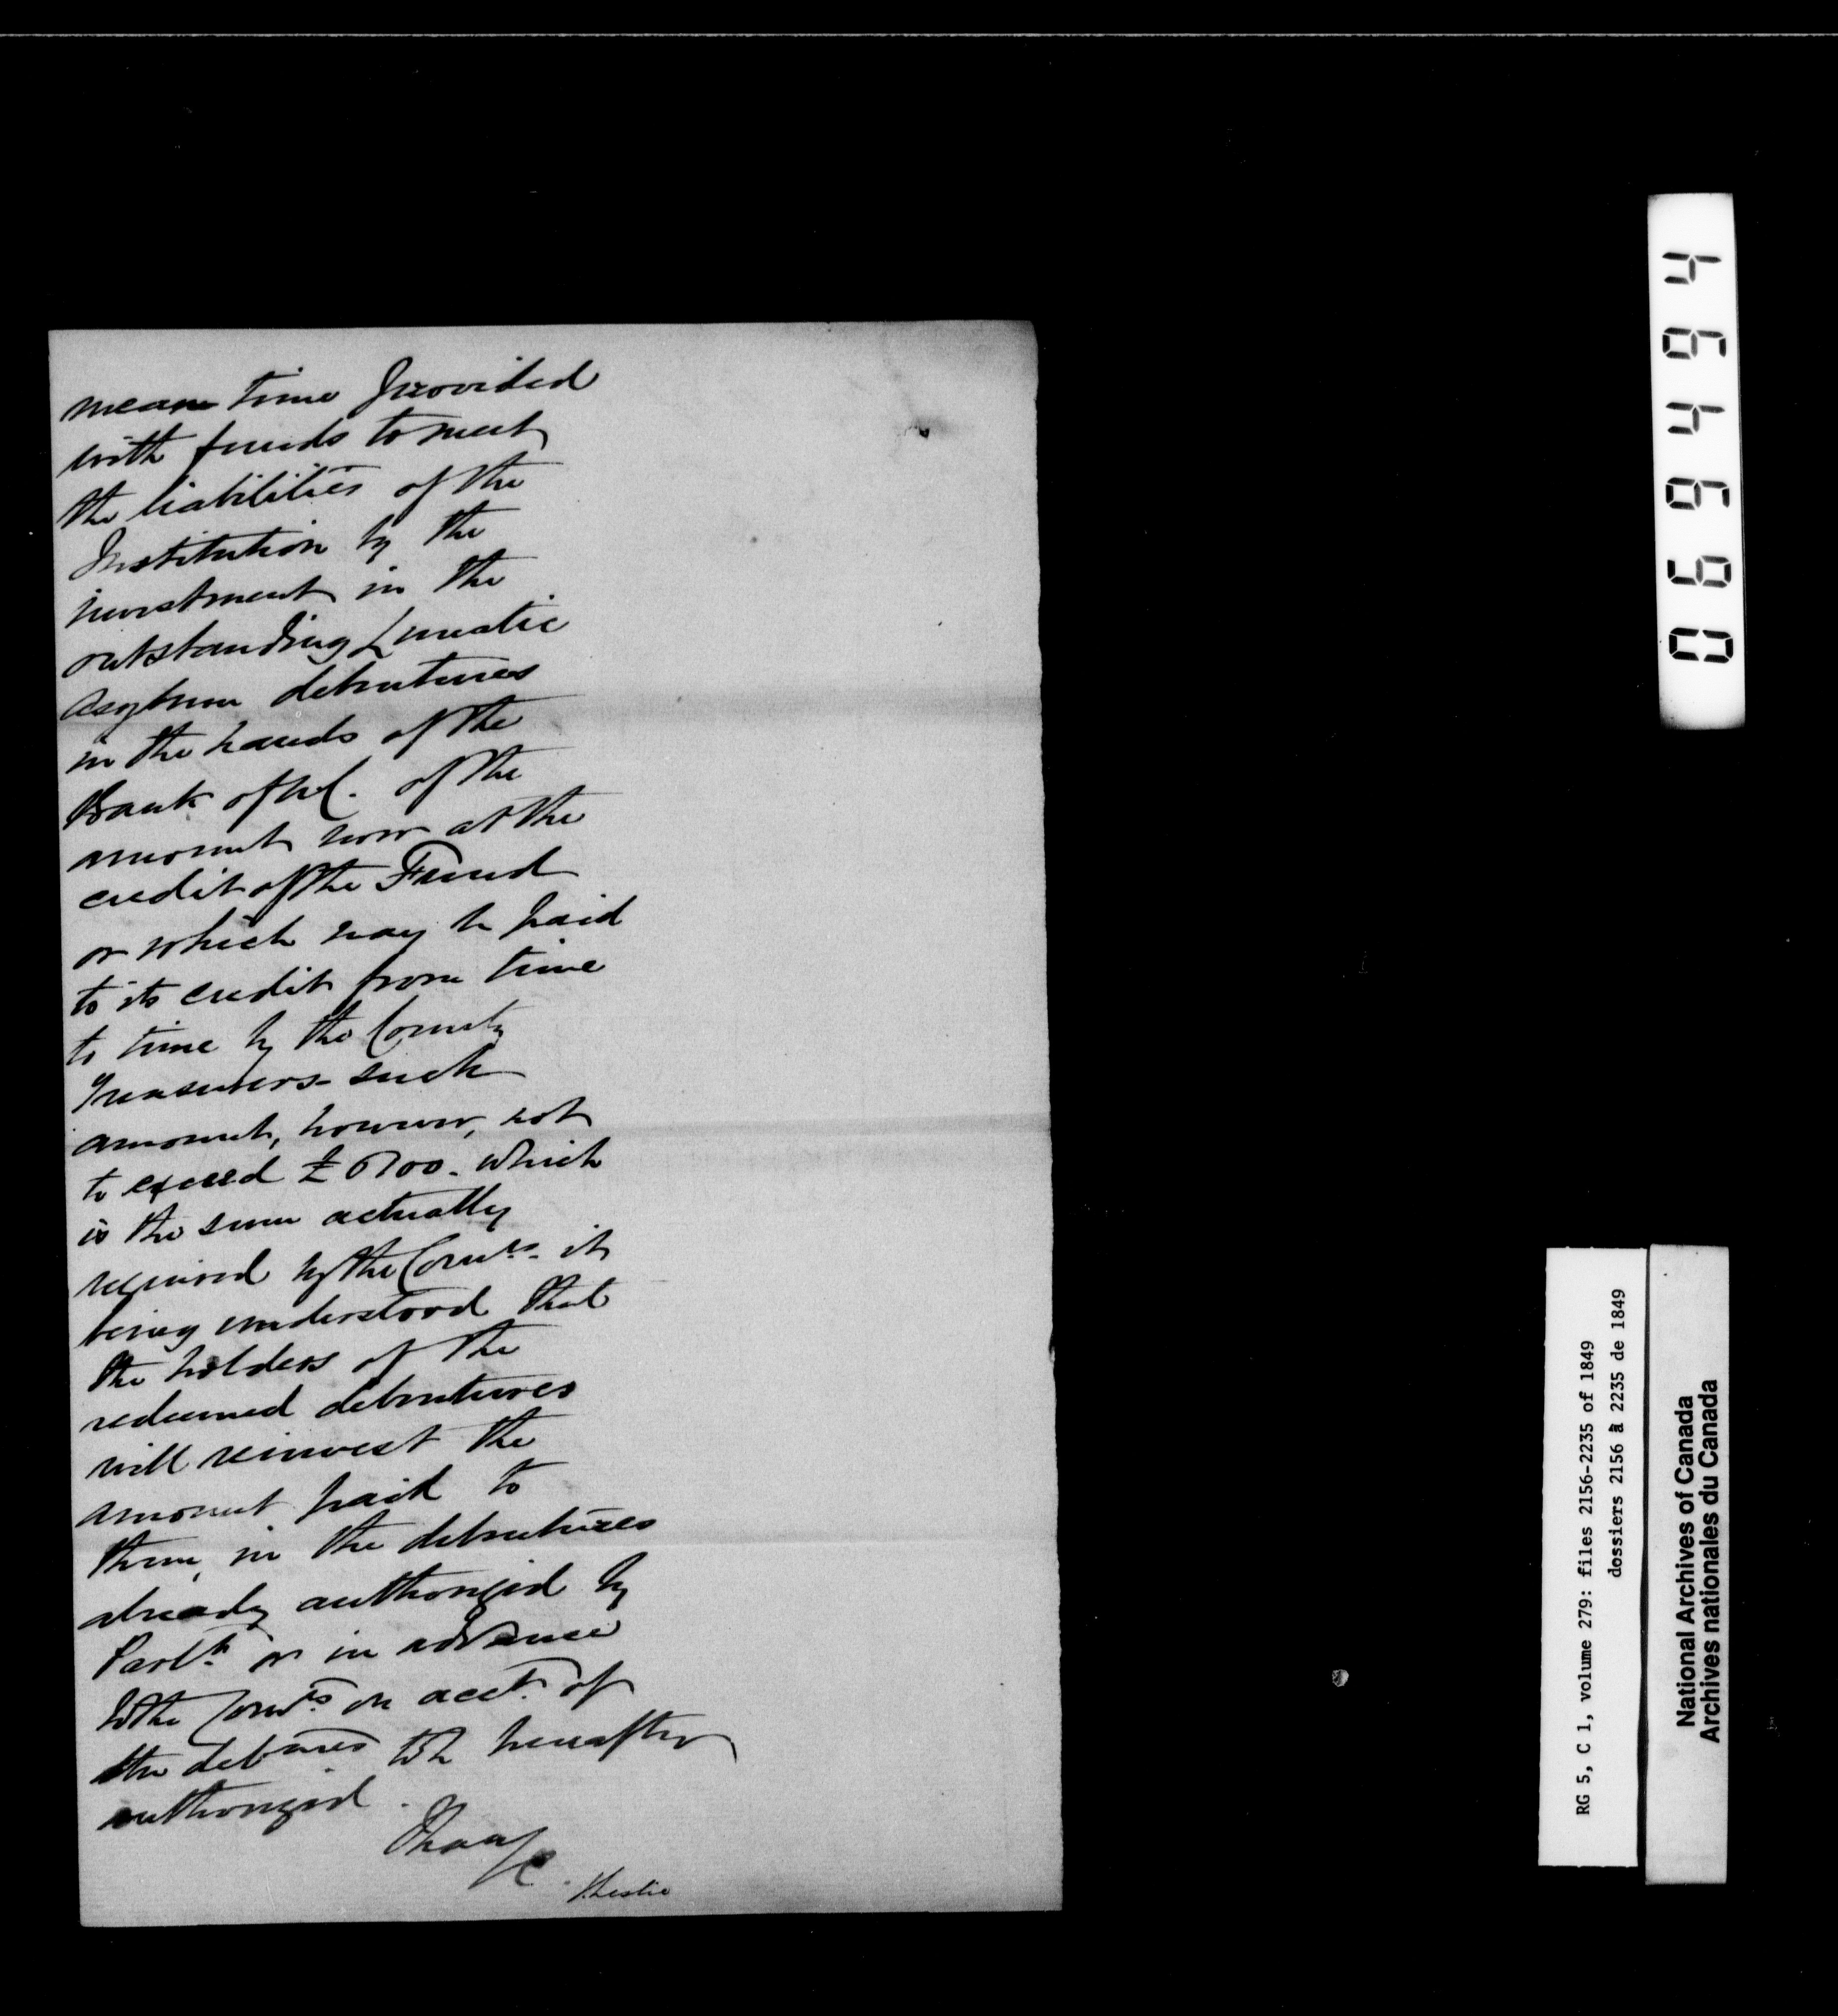 mean time provided
with funds to meet
the liabilities of the
Institution by the
investment in the
outstanding Lunatic
Asylum debentures
in the hands of the
Bank of U.C. of the
amount now at the
credit of the Fund
or which may be paid
to its credit from time
to time by the County
Treasurers - such
amount, however, not
to exceed £ 6700. which
is the sum actually
required by the Comrs. it
being understood that
the holders of the
redeemed debentures
will reinvest the
amount paid to
them, in the debentures
already authorized by
Parlt. or in advance
to the Comrs. on acct. of
the debures to be hereafter
authorized.
JLeslie
064494
RG 5, C 1, volume 279: files 2156-2235 of 1849
dossiers 2156 à 2235 de 1849
National Archives of Canada
Archives nationales du Canada